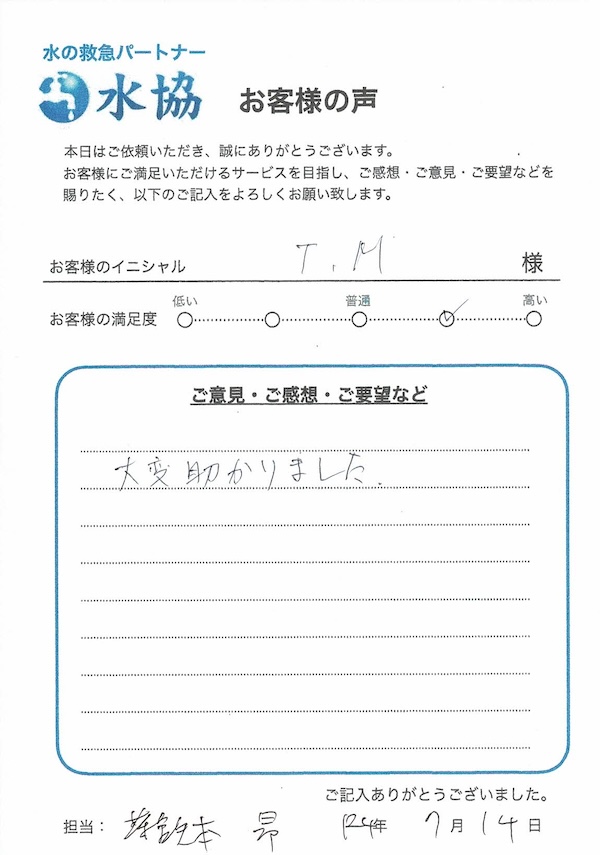 水の救急パートナー
水協
お客様の声
本日はご依頼いただき、誠にありがとうございます。
お客様にご満足いただけるサービスを目指し、ご感想・ご意見・ご要望などを
賜りたく、以下のご記入をよろしくお願い致します。
お客様のイニシャル T.M 様
低い 普通 高い
お客様の満足度
ご意見・ご感想・ご要望など
大変助かりました.
ご記入ありがとうございました。
担当: 本 昴 年 7月14日